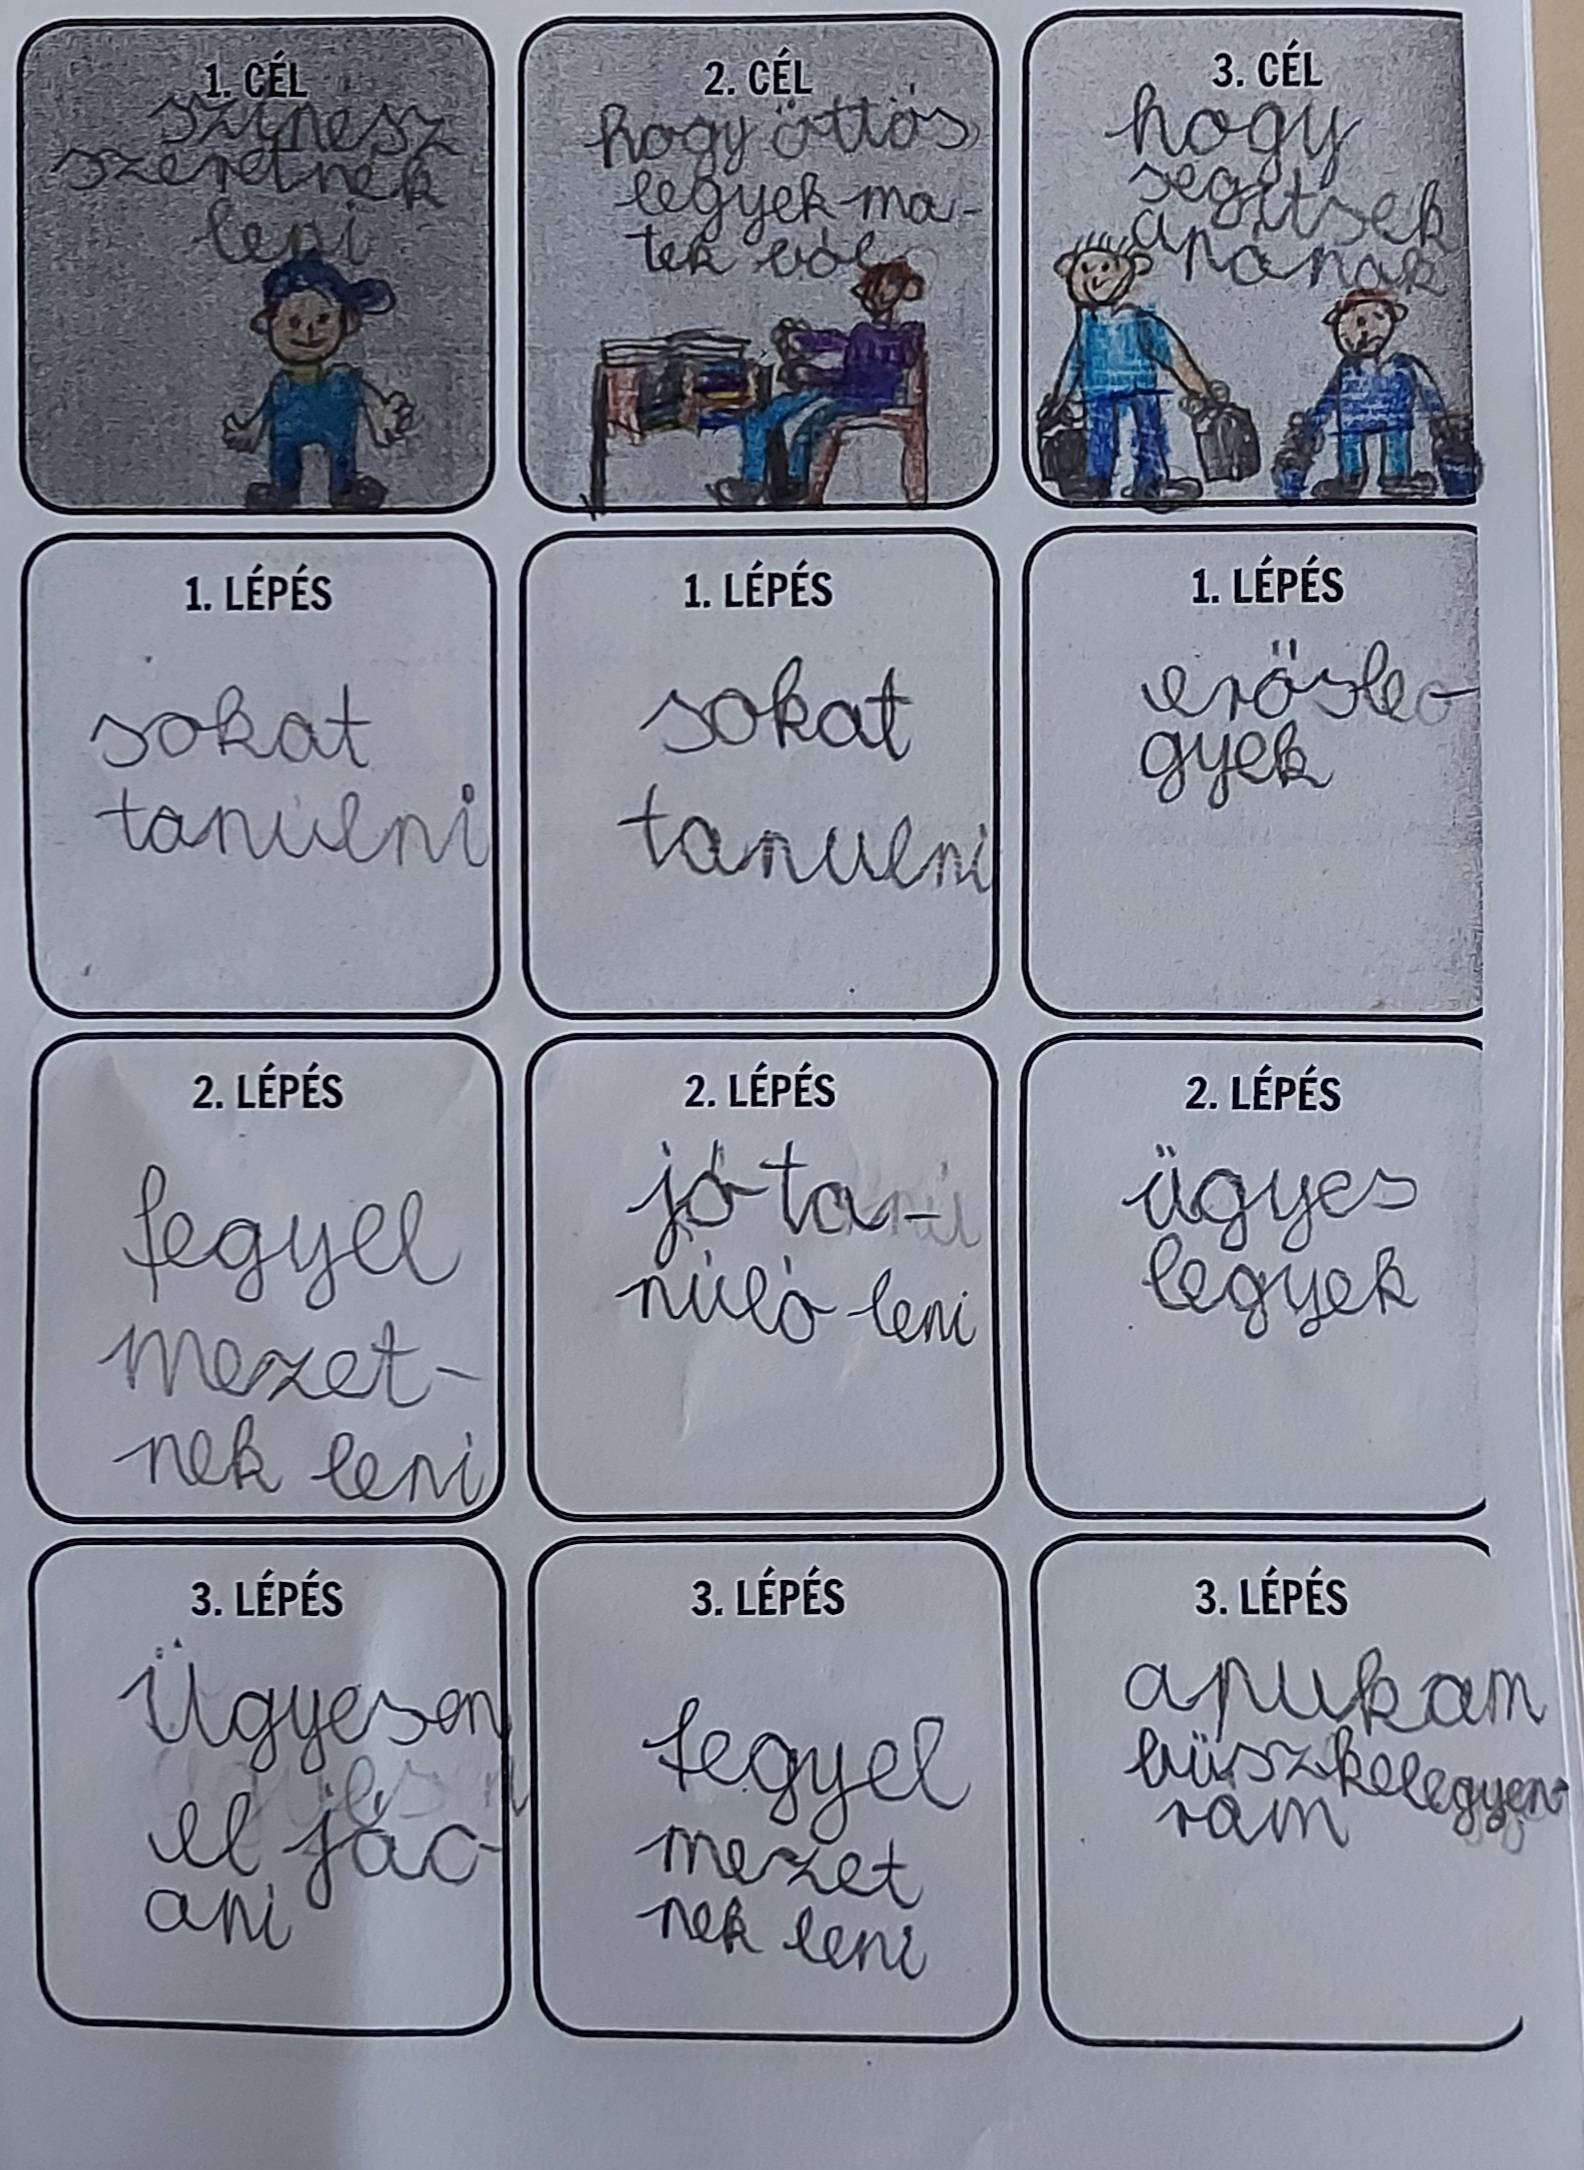 1. CÉL
szinesz
szeretnék
leni
2. CÉL
hogy öttös
legyek ma-
tek ból
3. CÉL
hogy
segítsek
apának
1. LÉPÉS
sokat
tanúlni
1. LÉPÉS
sokat
tanulni
1. LÉPÉS
erősle-
gyek
2. LÉPÉS
fegyel
mezet-
nek leni
2. LÉPÉS
jó ta-
núló leni
2. LÉPÉS
ügyes
legyek
3. LÉPÉS
Ügyesen
el jác-
ani
3. LÉPÉS
fegyel
mezet
nek leni
3. LÉPÉS
apukam
büszkelegyen
rám